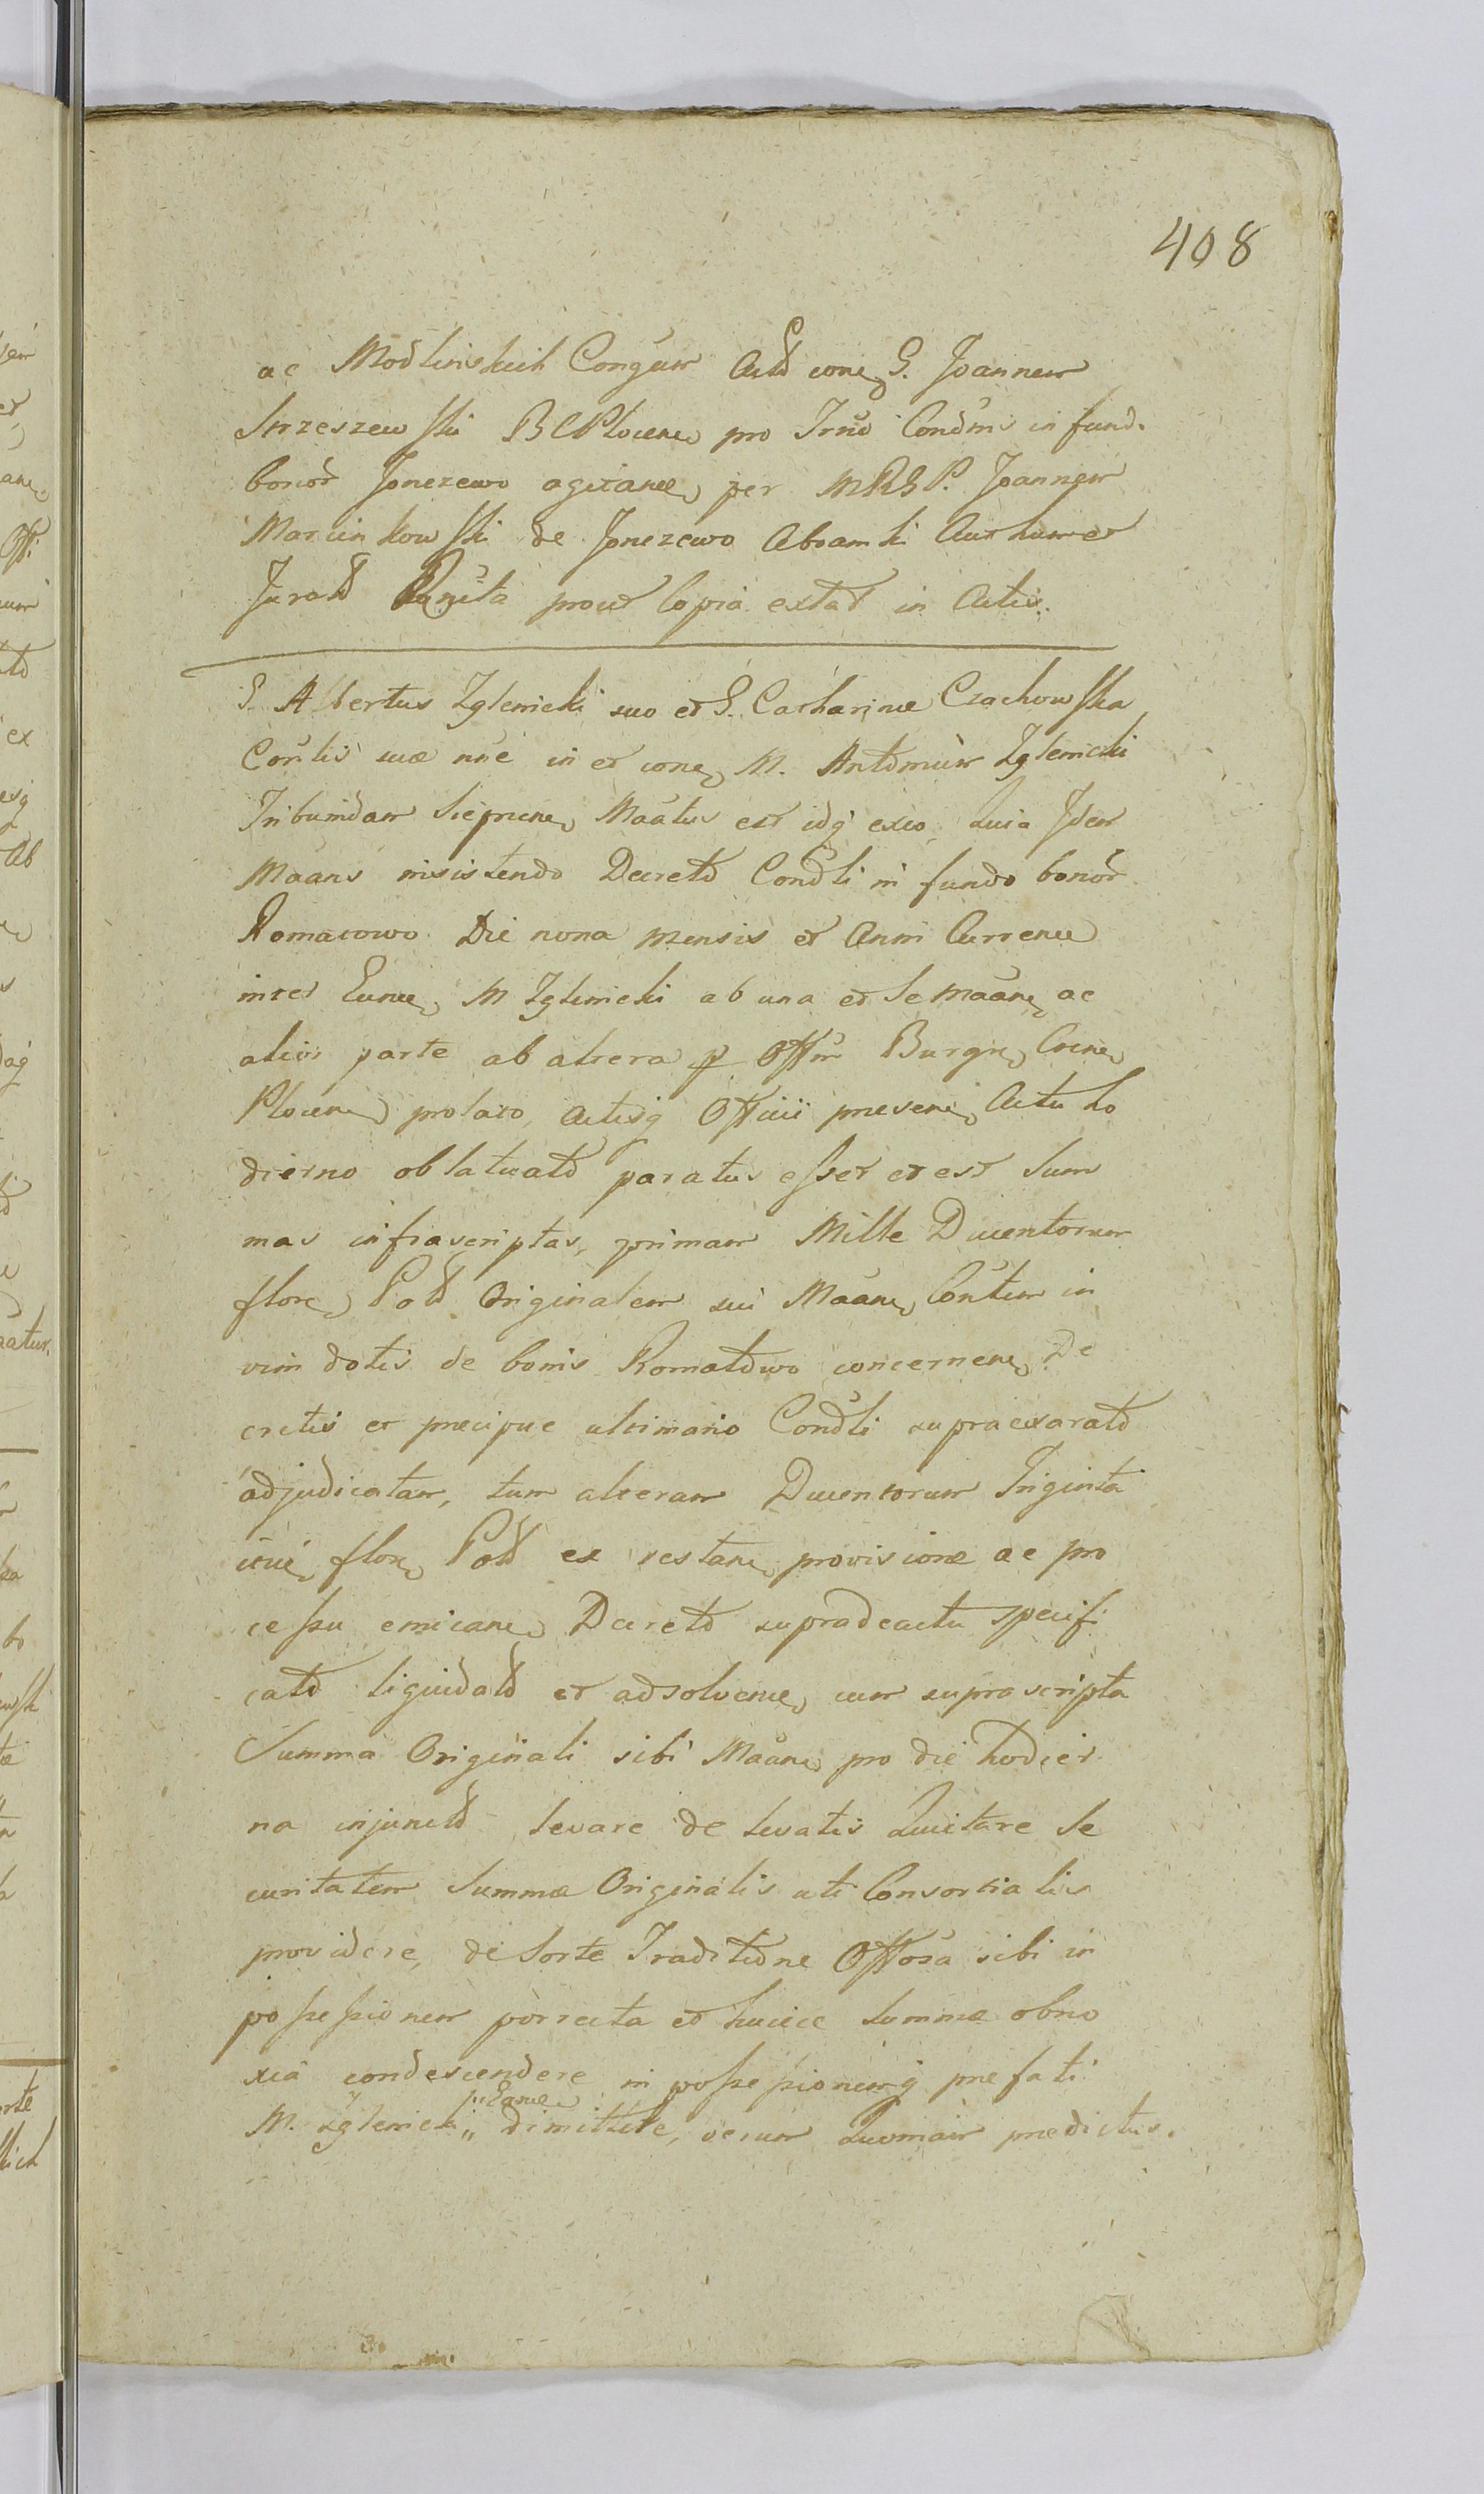 408
ac Modlinskich Congům Actt conc G. Joannem
Strzeszewski BCPlocenc pro Trno Condnis in fund.
bonor Jonczewo agitanc, per MRGP. Joannem
Marcinkowski de Jonczewo Abramki Authum et
Juratt prout Copia extat in Actis.
G. Albertus Zglenicki suo et G. Catharinae Czachowska
Conlis suae nne in et conc M. Antonium Zglenicki
Tribunidam Sieprcenc Maatus est idq exco, Quia Idem
Maans insistendo Decretto Condli in fundo bonor
Romatowo Die nona mensis et Anni Currenc
inter Eunc M Zglenicki ab una et se Maanc ac
aliis parte ab altera p Offm Burgn Crcne
Plocenc prolato, Actisq Officii praesenc Actu ho
dierno oblatuatto paratus esset et est Sum
mas infrascriptas, primam Mille Ducentorum
florc Poll Originalem sui Maanc Contem in
vim dotis de bonis Romatowo concernenc De
cretis et praecipue ultimario Condli supraexaratto
adjudicatam, tum alteram Ducentorum Triginta
florc Poll ex restanc provisione ac pro
cessu emicanc Decretto supradeactu specifi
catto liquidatt et adsolvenc cum suprascripta
Summa Originali sibi Maanc pro die hodier
na injunctt levare de levatis Quietare Se
curitatem Summae Originalis uti Consortialis
providere, de Sorte Traditione Offosa sibi in
possessionem porrecta et huicce Summae obno
xia condescendere in possessionemq praefati
M. Zglenicki dimittere, verum Quoniam praedictus.